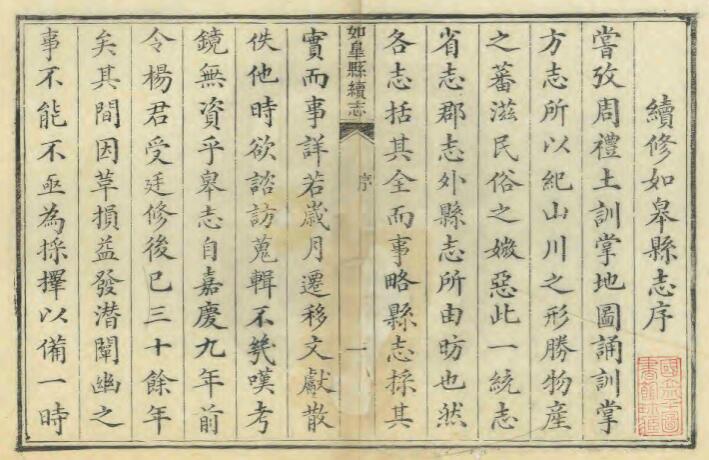 續修如皋縣志序
嘗攷周禮土訓掌地圖誦訓掌
方志所以紀山川之形勝物產
之蕃滋民俗之媺惡此一統志
省志郡志外縣志所由昉也然
各志括其全而事略縣志採其
如皋縣續志
序
一
實而事詳若歲月遷移文獻散
佚他時欲諮訪蒐輯不幾嘆考
鏡無資乎皋志自嘉慶九年前
令楊君受廷修後已三十餘年
矣其間因革損益發潛闡幽之
事不能不亟為採擇以備一時